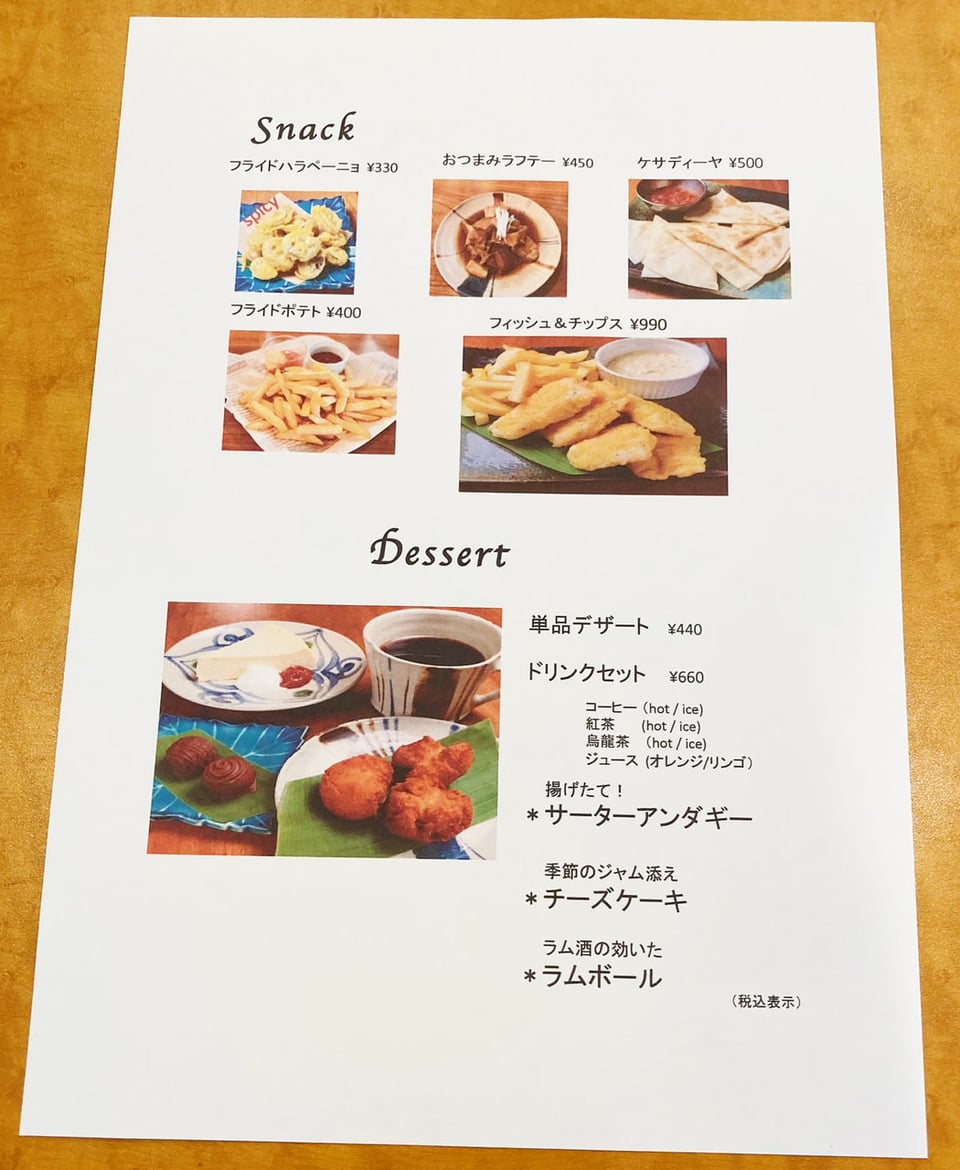 Snack
フライドハラペーニョ ¥330
おつまみラフテー ¥450
ケサディーヤ ¥500
spicy
フライドポテト ¥400
フィッシュ＆チップス ¥990
Dessert
単品デザート ¥440
ドリンクセット ¥660
コーヒー（hot / ice)
紅茶 (hot / ice)
烏龍茶 （hot / ice)
ジュース（オレンジ/リンゴ）
揚げたて！
＊サーターアンダギー
季節のジャム添え
＊チーズケーキ
ラム酒の効いた
＊ラムボール
（税込表示）